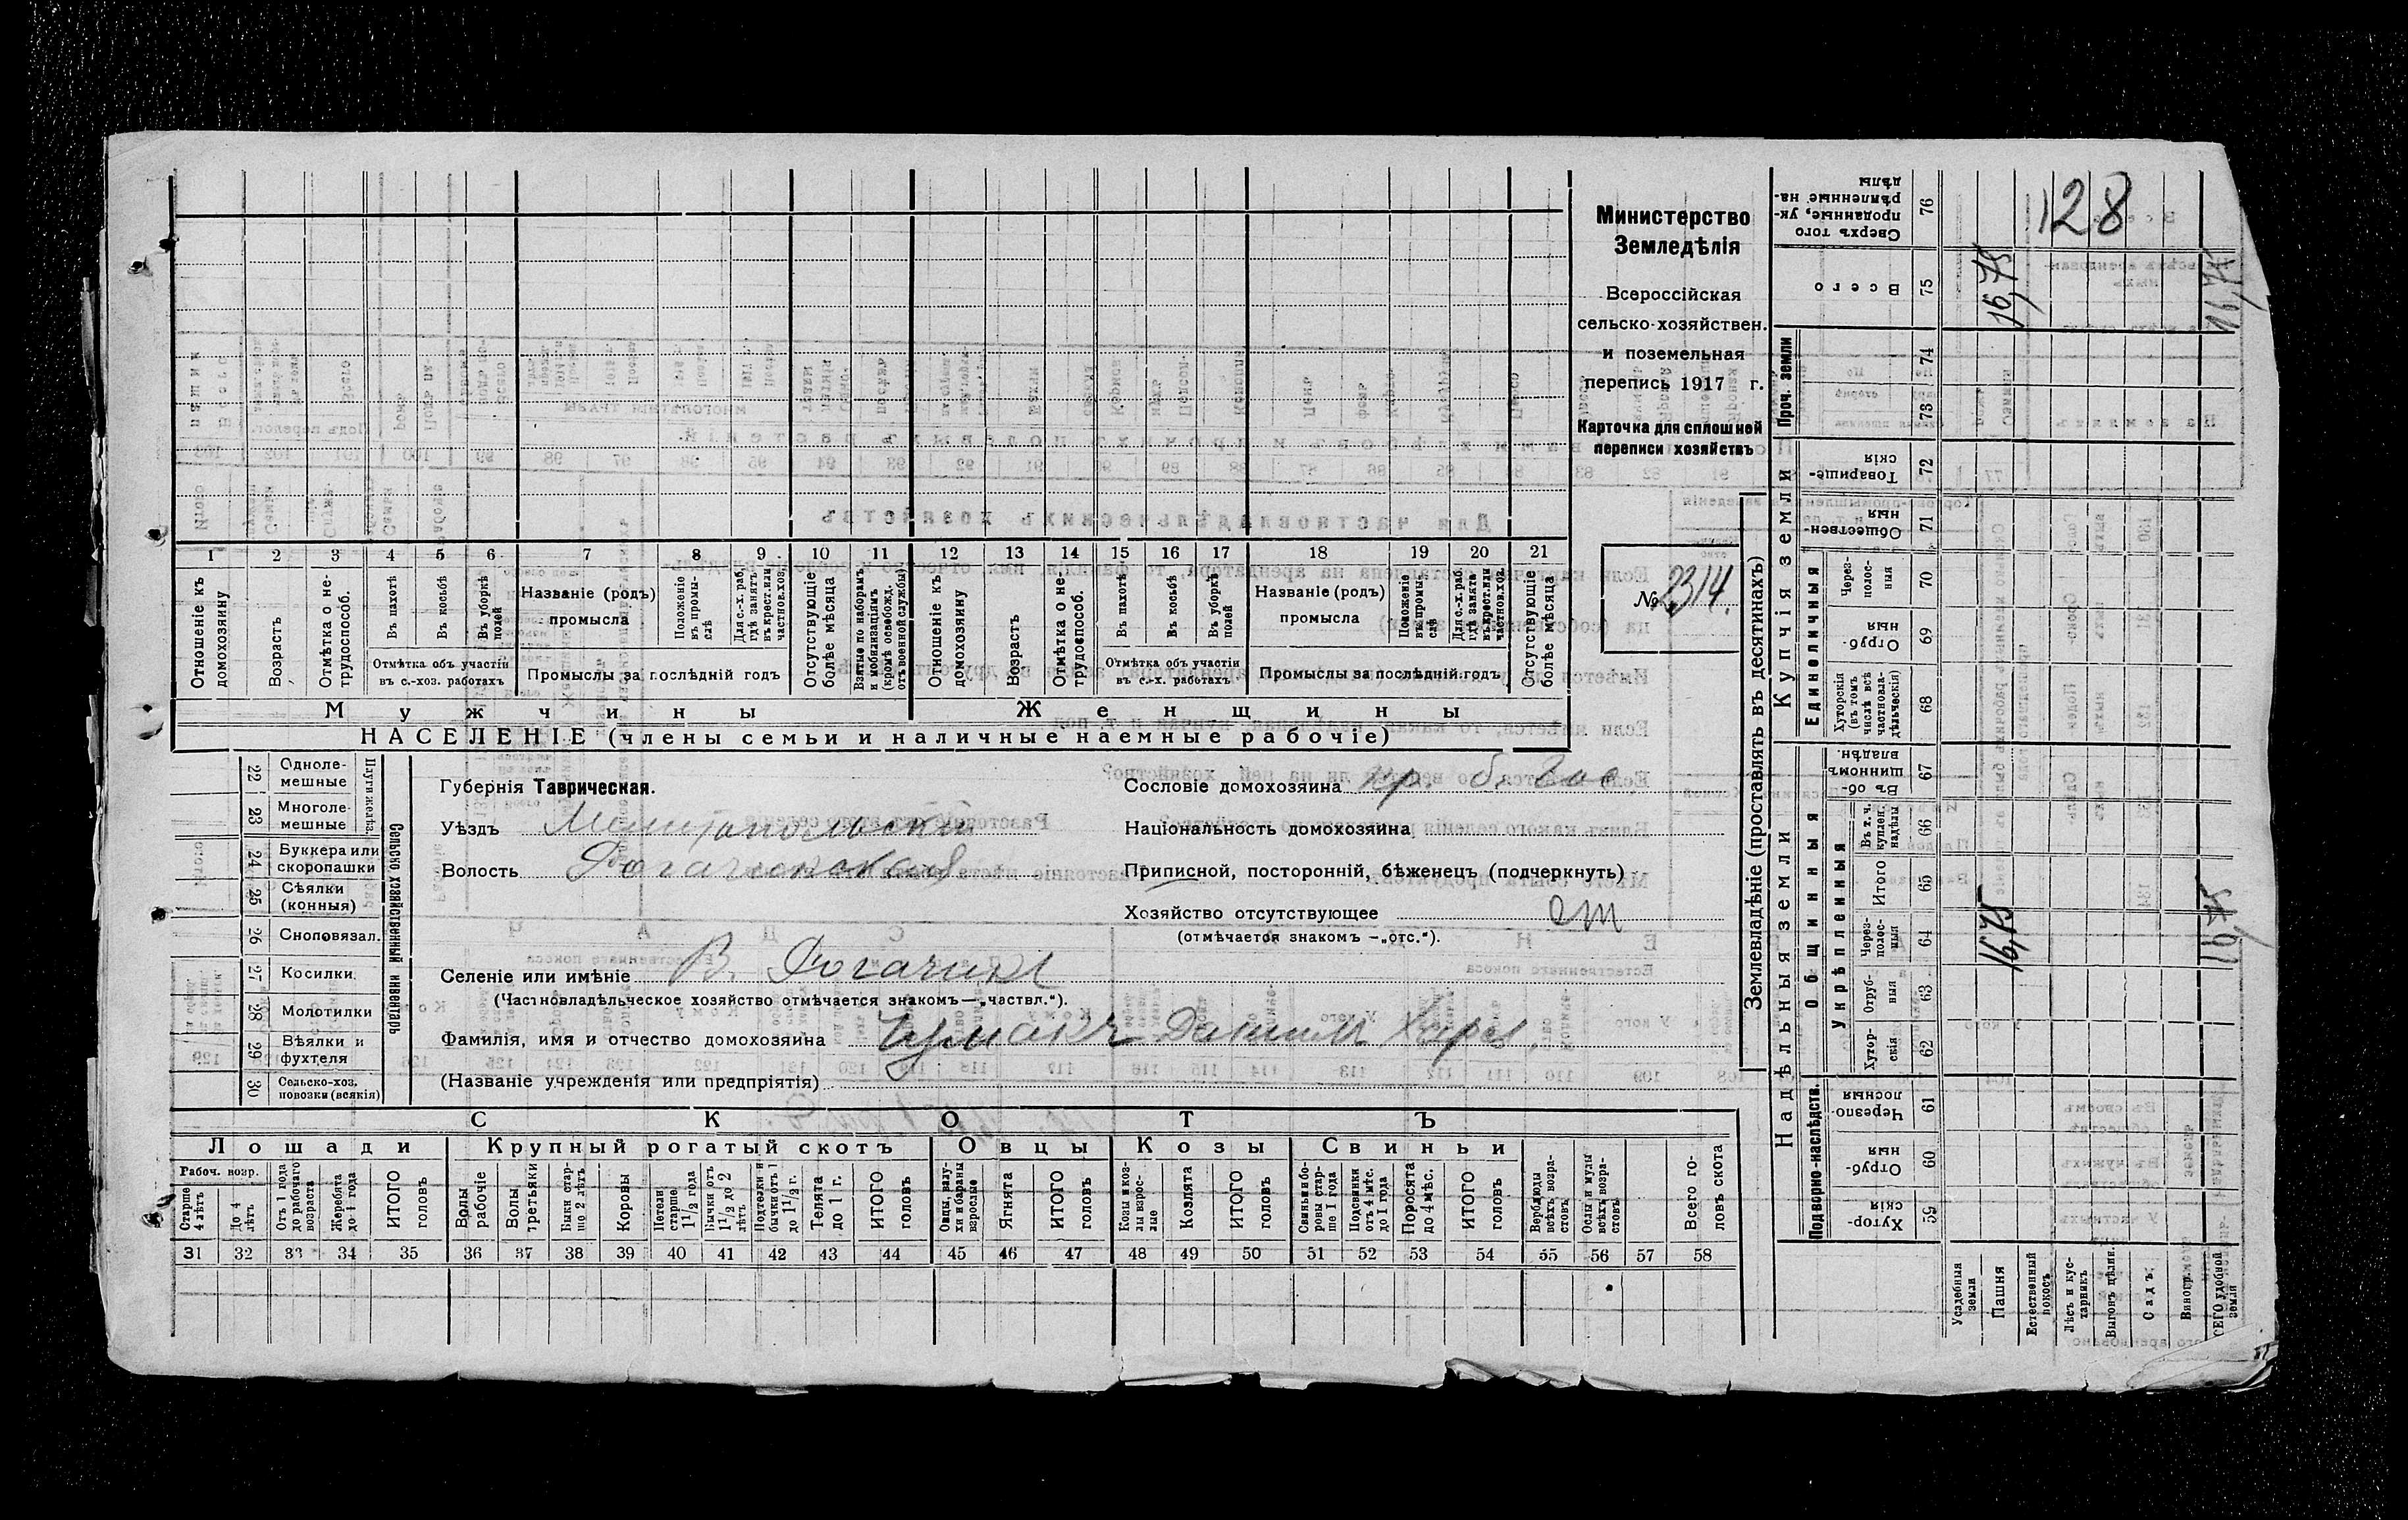 128
Министерство
Земледѣлія
Всероссійская
сельско-хозяйствен.
и поземельная
перепись 1917 г.
Карточка для сплошной
переписи хозяйствъ
№ 2314.
1 2 3 4 5 6 7 8 9 10 11 12 13 14 15 16 17 18 19 20 21
Отношеніе къ домохозяину
Возрастъ
Отмѣтка о не-трудоспособ.
Въ пахотѣ
Въ косьбѣ
Въ уборкѣ полей
Отмѣтка объ участіи
въ с.-хоз. работахъ
Названіе (родъ)
промысла
Положеніе въ промы-слѣ
Для с.-х. раб. гдѣ занятъ въ крест. или частнов. хоз.
Промыслы за послѣдній годъ
Отсутствующіе болѣе мѣсяца
Взятые по наборамъ и мобилизаціямъ (кромѣ освобожд. отъ военной службы)
Отношеніе къ домохозяину
Возрастъ
Отмѣтка о не-трудоспособ.
Въ пахотѣ
Въ косьбѣ
Въ уборкѣ полей
Отмѣтка объ участіи
въ с.-х. работахъ
Названіе (родъ)
промысла
Положеніе въ промы-слѣ
Для с.-х. раб. гдѣ занята въ крест. или частнов. хоз.
Промыслы за послѣдній годъ
Отсутствующіе болѣе мѣсяца
Мужчины Женщины
НАСЕЛЕНІЕ (члены семьи и наличные наемные рабочіе)
Сельско-хозяйственный инвентарь
22 Одноле-мешные
23 Многоле-мешные
24 Буккера или скоропашки
25 Сѣялки (конныя)
26 Сноповязал.
27 Косилки
28 Молотилки
29 Вѣялки и фухтеля
30 Сельско-хоз. повозки (всякія)
Губернія Таврическая.
Уѣздъ Мелитопольскій
Волость Рогачикская
Сословіе домохозяина кр. б. гос
Національность домохозяина
Приписной, посторонній, бѣженецъ (подчеркнуть)
Хозяйство отсутствующее от
(отмѣчается знакомъ —„отс.“).
Селеніе или имѣніе В. Рогачикъ
(Частновладѣльческое хозяйство отмѣчается знакомъ—„частвл.“).
Фамилія, имя и отчество домохозяина Чумакъ Даніилъ Хар.
(Названіе учрежденія или предпріятія)
СКОТЪ
Лошади Крупный рогатый скотъ Овцы Козы Свиньи
Рабоч. возр.
Старше 4 лѣтъ
До 4 лѣтъ
Отъ 1 года до рабочаго возраста
Жеребята до 1 года
ИТОГО головъ
Волы рабочіе
Волы третьяки
Быки стар-ше 2 лѣтъ
Коровы
Нетели старше 1½ года
Бычки отъ 1½ до 2 лѣтъ
Подтелки и бычки отъ 1 до 1½ г.
Телята до 1 г.
ИТОГО головъ
Овцы, валу-хи и бараны взрослые
Ягнята
ИТОГО головъ
Козы и коз-лы взрос-лые
Козлята
ИТОГО головъ
Свиньи и бо-ровы стар-ше 1 года
Подсвинки отъ 4 мѣс. до 1 года
Поросята до 4 мѣс.
ИТОГО головъ
Верблюды всѣхъ возра-стовъ
Ослы и мулы всѣхъ возра-стовъ
Всего го-ловъ скота
31 32 33 34 35 36 37 38 39 40 41 42 43 44 45 46 47 48 49 50 51 52 53 54 55 56 57 58
Землевладѣніе (проставлять въ десятинахъ)
Надѣльныя земли Купчія земли Проч. земли
Подворно-наслѣдств.
Общинныя
Укрѣпленныя
Единоличныя
Хутор-скія 59
Отруб-ныя 60
Черезпо-лосныя 61
Хутор-скія 62
Отруб-ныя 63
Через-полос-ныя 64
Итого 65
Въ т. ч. куплен. надѣлы 66
Въ об-щинномъ владѣн. 67
Хуторскія (въ томъ числѣ всѣ частновла-дѣльческія) 68
Отруб-ныя 69
Через-полос-ныя 70
Обществен-ныя 71
Товарище-скія 72
73
74
Всего 75
Сверхъ того проданные, ук-рѣпленные на-дѣлы 76
Усадебныя земли
Пашня 16,75 16,75
Естественный покосъ
Лѣсъ и кус-тарникъ
Выгонъ, цѣлин.
Садъ
Виногр.
ВСЕГО удобной земли 16,75 16,75